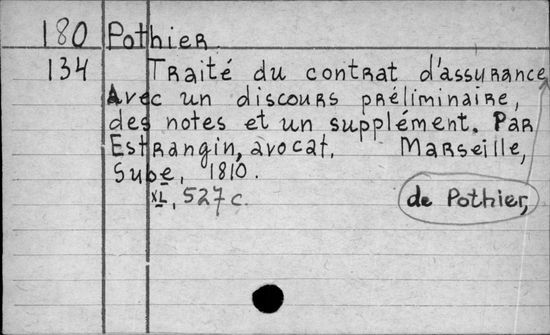 180 Pothier
134 Traité du contrat d'assurance
Avec un discours préliminaire,
des notes et un supplément. Par
Estrangin, avocat. Marseille,
Sube, 1810.
XL, 527 c.
de Pothier,